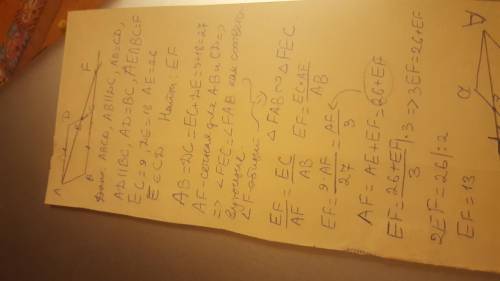 A
D
B
F
Дано: ABCD, AB||DC, AB=CD,
AD||BC, AD=BC, AE∩BC=F
EC=9, DE=18 AE=26
E∈CD Найти: EF
AB=DC=EC+DE=9+18=27
AF-секущая для AB и CD =>
=> ∠FEC=∠FAB как соответ
∠F-общий => △FAB∾△FEC
EF/AF = EC/AB EF = EC·AF/AB
EF = 9·AF/27 = AF/3
AF = AE+EF = 26+EF
EF = 26+EF/3 |·3 => 3EF=26+EF
2EF=26|:2
EF=13
A